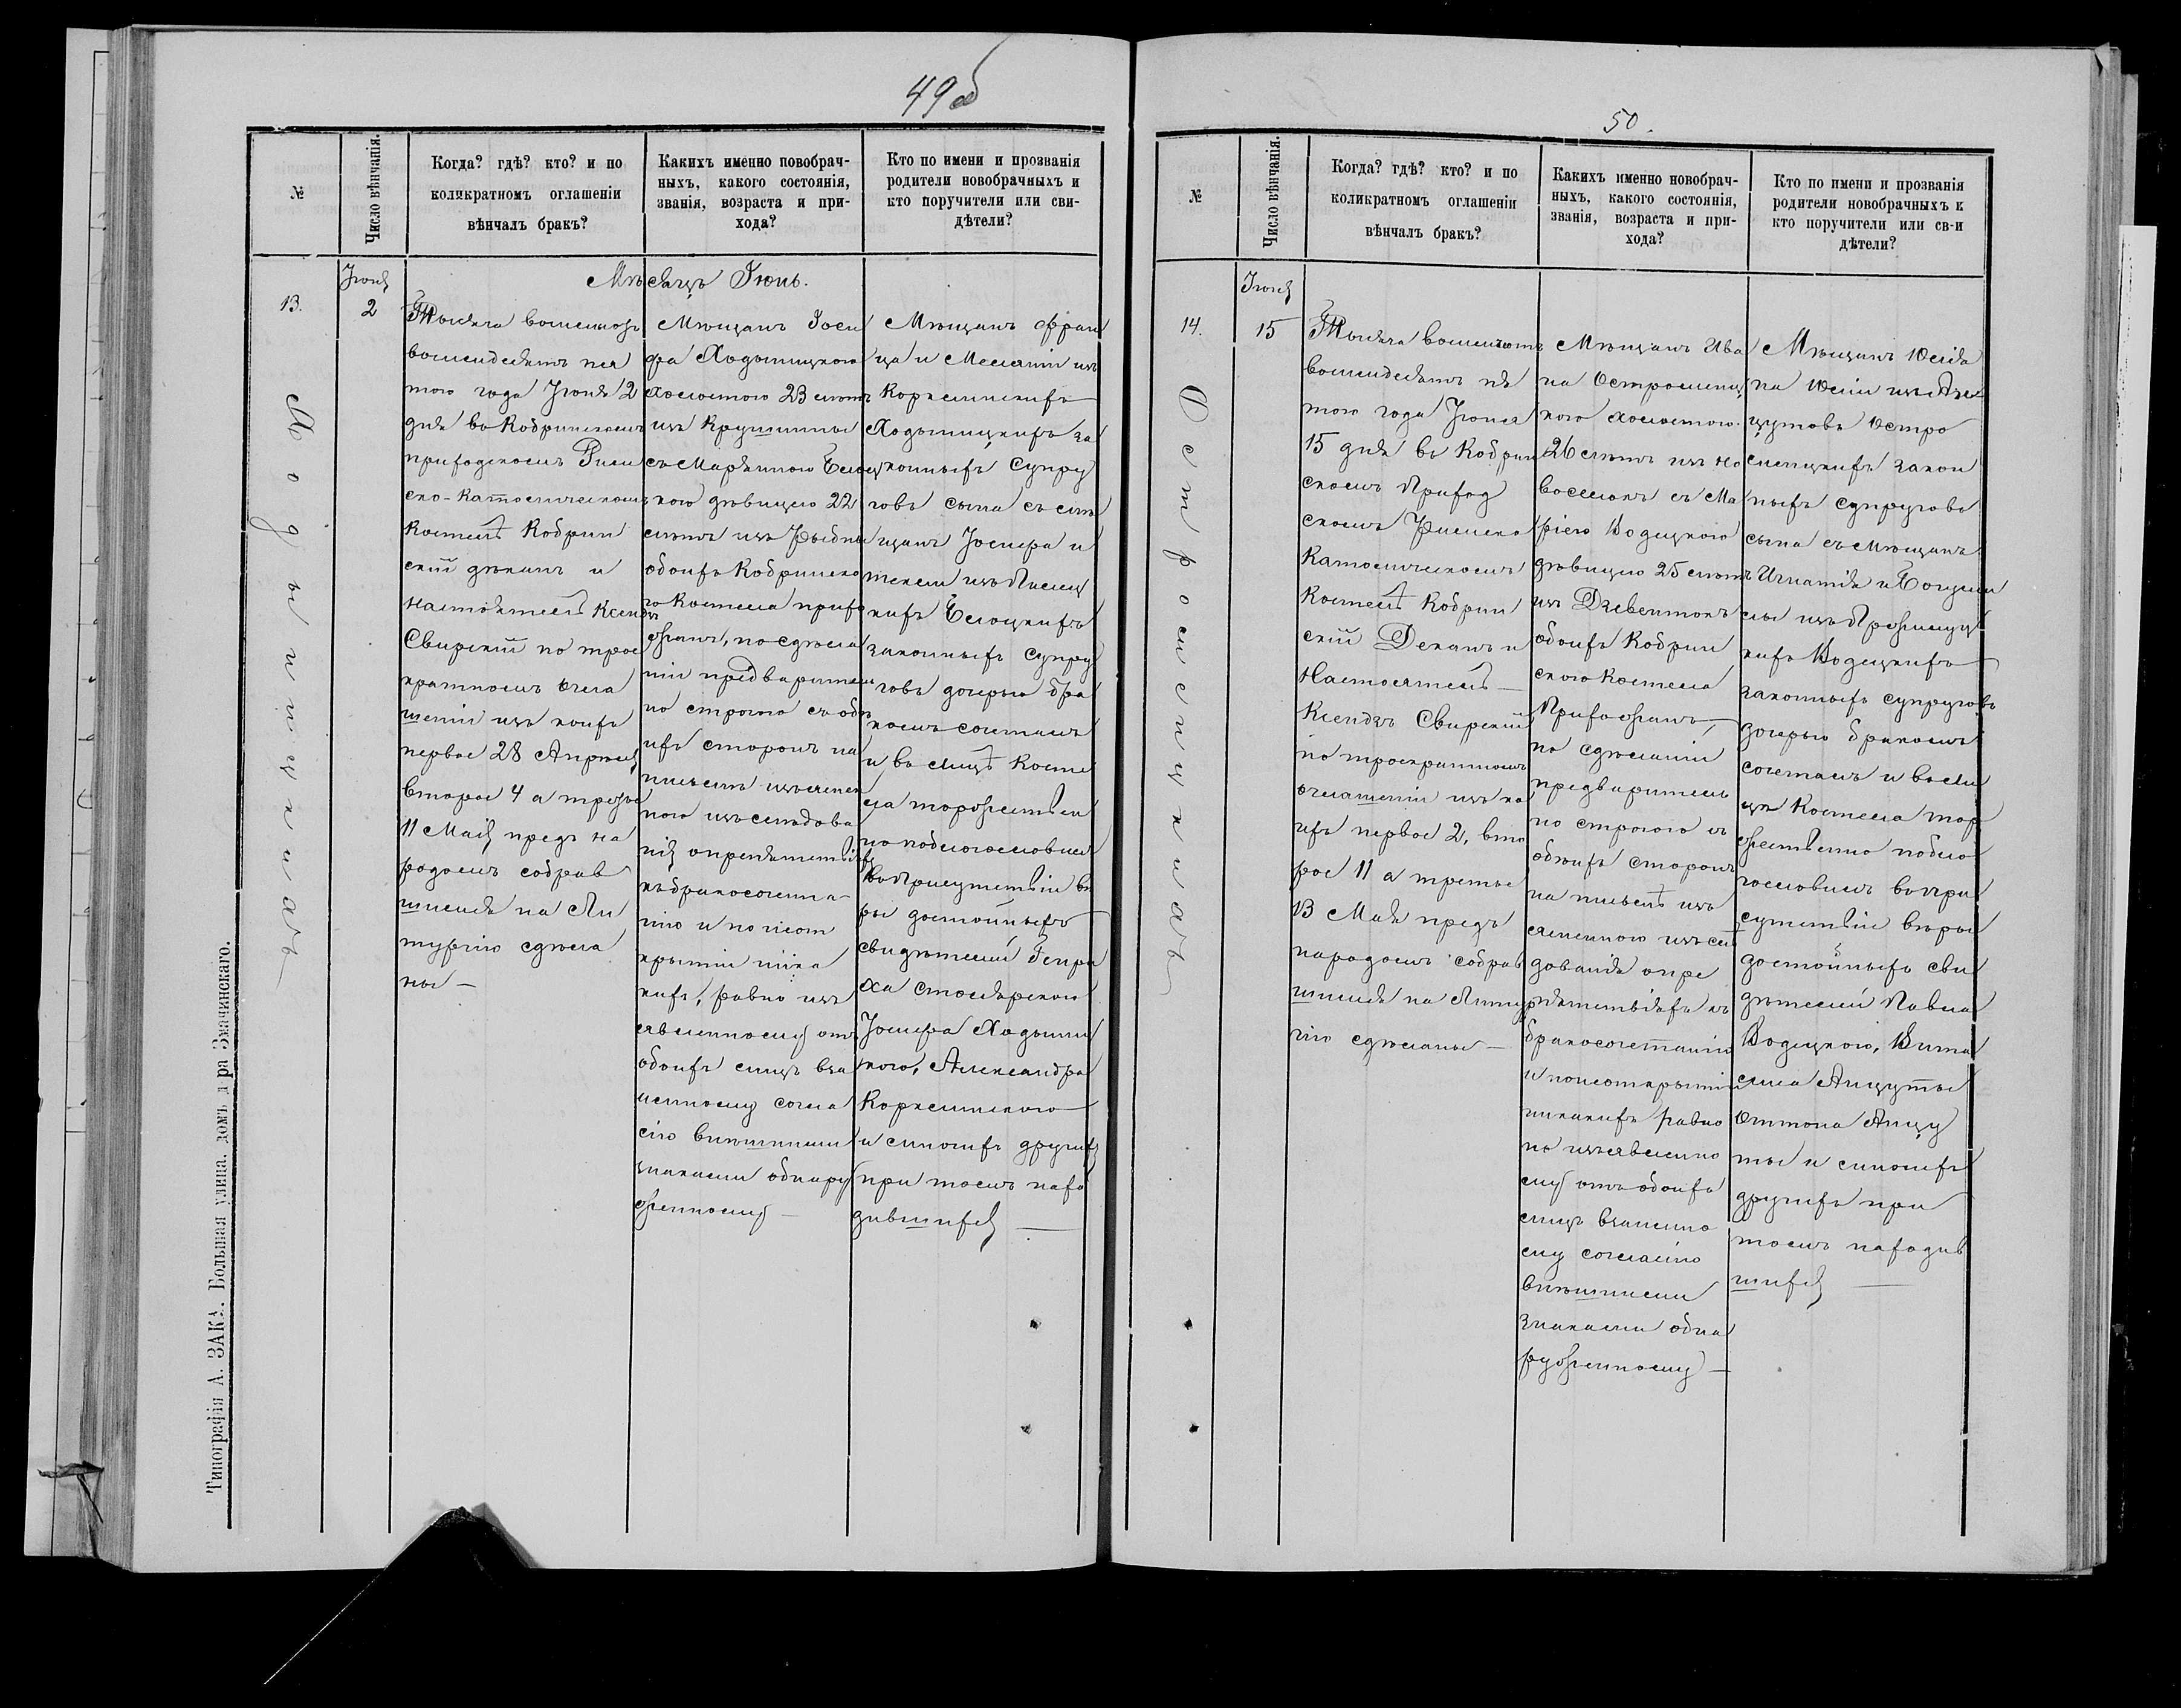 49об
№
Число вѣнчанія.
Когда? гдѣ? кто? и по
коликратномъ оглашеніи
вѣнчалъ бракъ?
Какихъ именно новобрач-
ныхъ, какого состоянія,
званія, возраста и при-
хода?
Кто по имени и прозванія
родители новобрачныхъ и
кто поручители или сви-
дѣтели?
Мѣсяцъ Іюнь.
13.
Іюня
2
Ходыницкихъ
Тысяча восемьсотъ
восемьдесятъ пя
того года Іюня 2
дня въ Кобринскомъ
приходскомъ Рим
ско-Католическомъ
Костелѣ Кобрин
скій деканъ и
Настоятель Ксендзъ
Свирскій по трое
кратномъ огла
шеніи изъ коихъ
первое 28 Апрѣля
второе 4 а третье
11 Маія предъ на
родомъ собрав
шимся на Ли
тургію сдѣла
ны —
Мѣщанъ Іоси
фа Ходыницкого
холостого 23 лѣтъ
изъ Крушины
съ Маріанною
кого дѣвицею 22
лѣтъ изъ Рыбны
обоихъ Кобринско
го Костела прихо
жанъ, по сдѣла
ніи предварите
но строго съ обо
ихъ сторонъ на
письмѣ изъясне
ного изслѣдова
нія о препятствіяхъ
къ бракосочета-
нію и по неот
крытіи ника
кихъ, равно изъ
явленному отъ
обоихъ лицъ вза
имному согла
сію внѣшними
знаками обнару
женному —
Мѣщанъ Фран
ца и Меланіи изъ
Коркелинскихъ
Ходыницкихъ за
конныхъ Супру
говъ сына съ мѣ
щанъ Іосифа и
Теклі изъ
кихъ
законныхъ Супру
говъ дочерью бра
комъ сочеталъ
и въ лицѣ Косте
ла торжествен
но поблагословилъ
въ присутствіи вѣ
ры достойныхъ
свидѣтелей Генри
ха Столярского
Іосифа Ходыниц
кого, Александра
Коркелинского
и многихъ другихъ
при томъ нахо
дившихся —
Типографія А. ЗАКА. Большая улица, домъ д-ра Змачинскаго.
50.
№
Число вѣнчанія.
Когда? гдѣ? кто? и по
коликратномъ оглашеніи
вѣнчалъ бракъ?
Какихъ именно новобрач-
ныхъ, какого состоянія,
званія, возраста и при-
хода?
Кто по имени и прозванія
родители новобрачныхъ к
кто поручители или св-и
дѣтели?
14.
Іюня
15
Остромецкихъ
Тысяча восемьсотъ
восемьдесятъ пя
того года Іюня
15 дня въ Кобрин
скомъ Приход
скомъ Римско
Католическомъ
Костелѣ Кобрин
скій Деканъ и
Настоятель —
Ксендзъ Свирскій
по троекратномъ
оглашеніи изъ ко
ихъ первое 2, вто
рое 11 а третье
13 Мая предъ
народомъ собрав
шимся на Литур
гію сдѣланы —
Мѣщанъ Ива
на Остромец
кого холостого
26 лѣтъ изъ Но
воселокъ съ Ма
ріею Водецкою
дѣвицею 25 лѣтъ
изъ
обоихъ Кобрин
ского Костела
Прихожанъ,
по сдѣланіи
предваритель
но строгого съ
обоихъ сторонъ
на письмѣ изъ
ясненного изслѣ
дованія о пре
пятствіяхъ къ
бракосочетанію
и по неоткрытіи
никакихъ равно
но изъявленно
му отъ обоихъ
лицъ взаимно
му согласію
внѣшними
знаками обна
руженному —
Мѣщанъ
на
Остро
мецкихъ закон
ныхъ супруговъ
сына съ мѣщанъ
Игнатія и
лы изъ
кихъ Водецкихъ
законныхъ супруговъ
дочерью бракомъ
сочеталъ и въ ли
цѣ Костела тор
жественно побла
гословилъ въ при
сутствіи вѣры
достойныхъ сви
дѣтелей Павла
Водецкого,
Анцуты
Оттона Анцу
ты и многихъ
другихъ при
томъ находив
шихся —